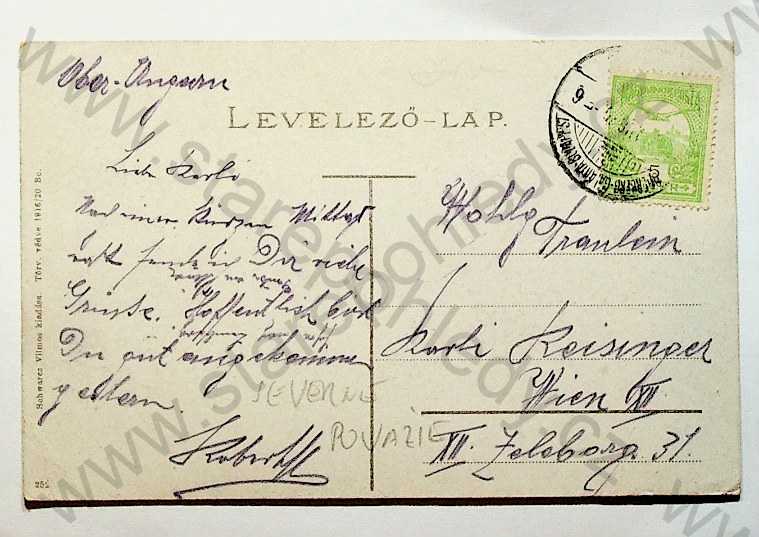 Ober-Ungarn
LEVELEZŐ-LAP.
Liebe Karli
Nach einer kurzen Mittags
rast sende ich Dir viele
Grüsse. Hoffentlich bist
Du gut angekommen
gestern.
Robert
SEVERNÉ
POVAŽIE
Wohlg
Fraulein
Karli Reisinger
Wien XII
XII. Zeleborg. 31.
Schwarcz Vilmos kiadása. Törv. védve 1916/20 Bc.
252
www.starepohledy.cz